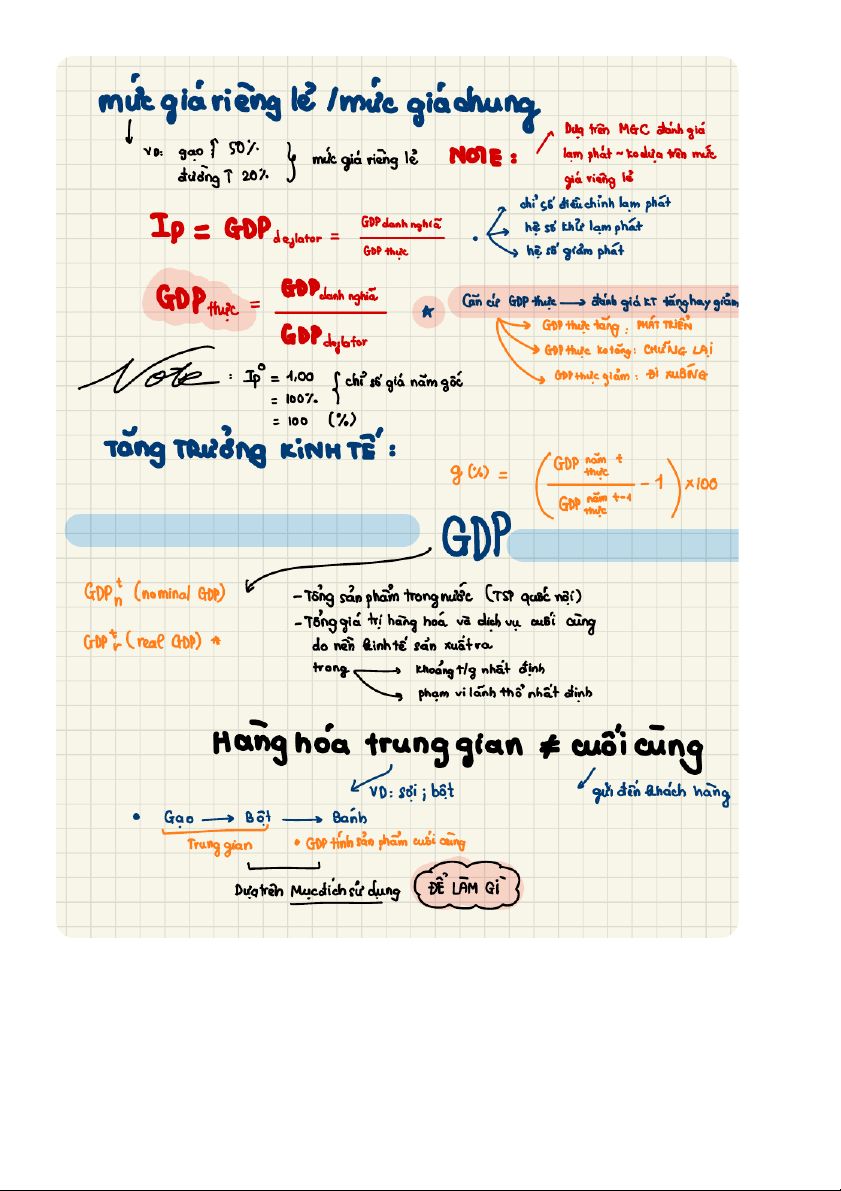 mức giá riêng lẻ / mức giá chung
VD: gạo ↑ 50%
đường ↑ 20%
mức giá riêng lẻ
NOTE:
Dựa trên MGC đánh giá
lạm phát ~ ko dựa trên mức
giá riêng lẻ
Ip = GDP deflator = GDP danh nghĩa / GDP thực
• chỉ số điều chỉnh lạm phát
hệ số khử lạm phát
hệ số giảm phát
GDP thực = GDP danh nghĩa / GDP deflator
* Căn cứ GDP thực → đánh giá KT tăng hay giảm
GDP thực tăng: PHÁT TRIỂN
GDP thực ko tăng: CHỮNG LẠI
GDP thực giảm: ĐI XUỐNG
Note: Ip⁰ = 1,00
= 100%
= 100 (%)
chỉ số giá năm gốc
TĂNG TRƯỞNG KINH TẾ:
g (%) = (GDP thực năm t / GDP thực năm t-1 - 1) × 100
GDP
GDPₙᵗ (nominal GDP)
GDPᵣᵗ (real GDP) *
- Tổng sản phẩm trong nước (TSP quốc nội)
- Tổng giá trị hàng hoá và dịch vụ cuối cùng
do nền kinh tế sản xuất ra
trong → khoảng t/g nhất định
→ phạm vi lãnh thổ nhất định
Hàng hóa trung gian ≠ cuối cùng
VD: sợi; bột
gửi đến khách hàng
• Gạo → Bột → Bánh
Trung gian
• GDP tính sản phẩm cuối cùng
Dựa trên Mục đích sử dụng
ĐỂ LÀM GÌ